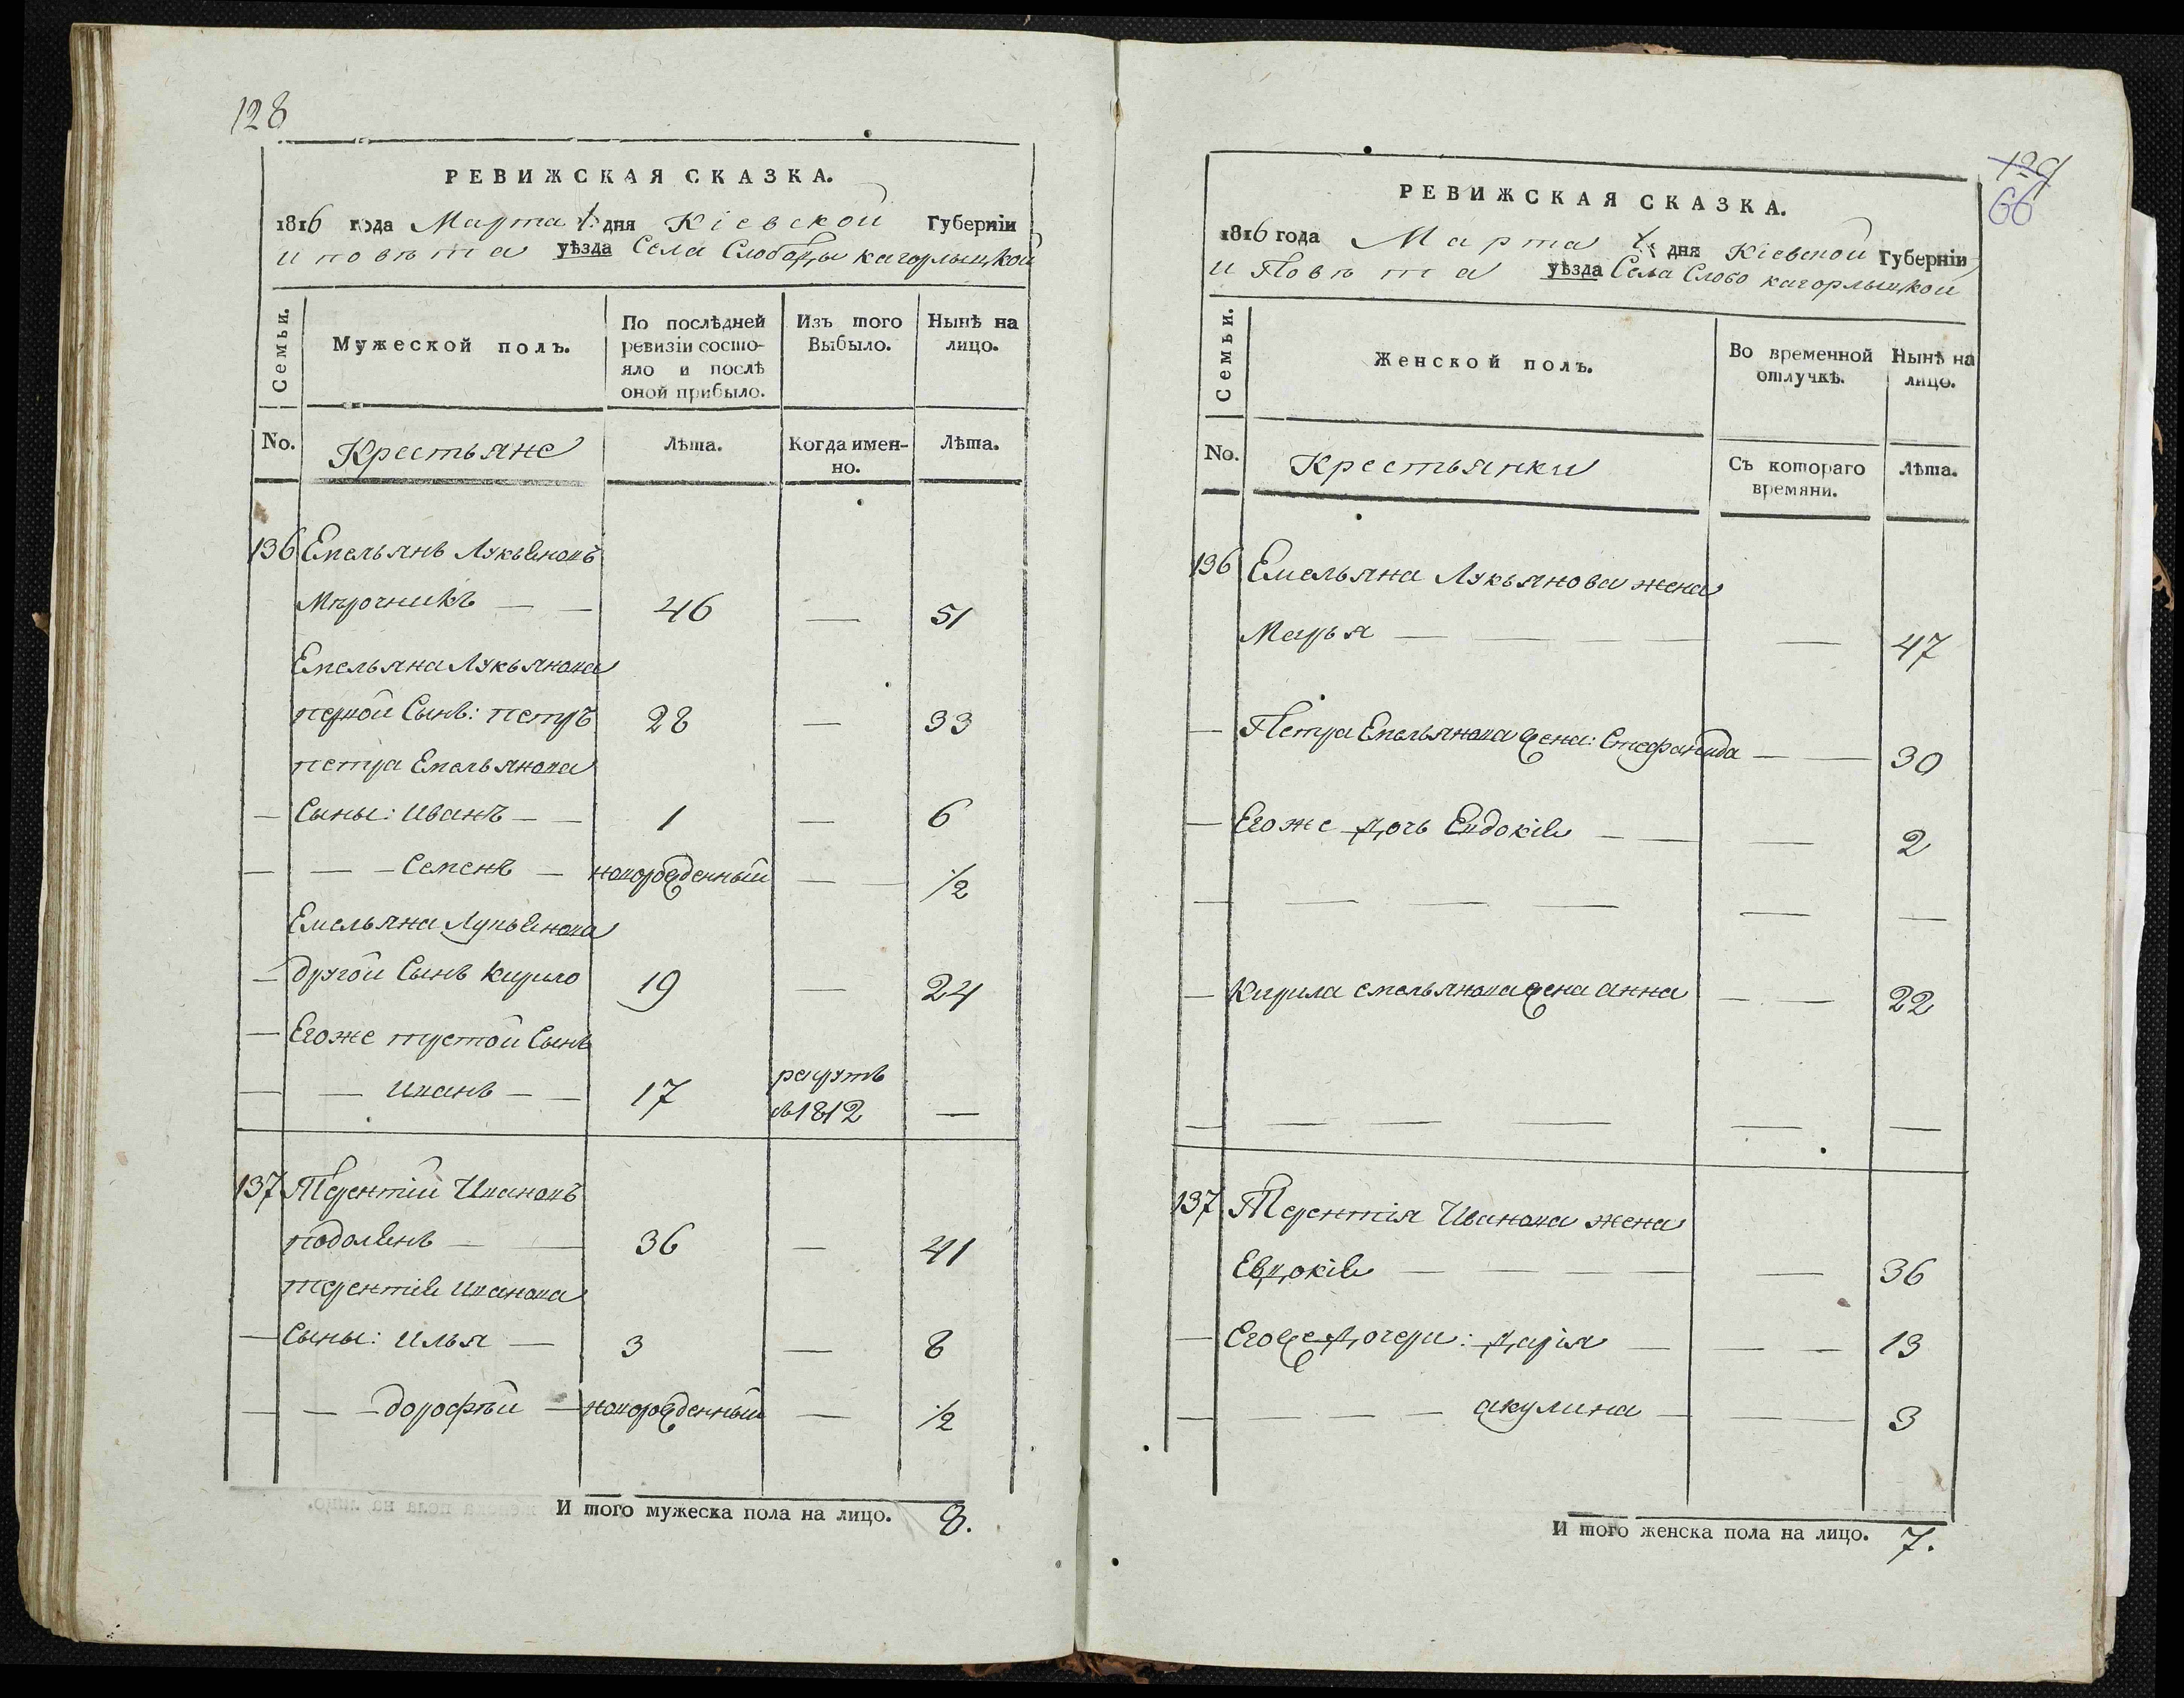 128
РЕВИЖСКАЯ СКАЗКА.
1816 года Марта дня Кіевской Губерніи
и повѣта уѣзда Села Слободы кагорлыцкой
Семьи.
Мужеской полъ.
По послѣдней ревизіи состояло и послѣ оной прибыло.
Изъ того Выбыло.
Нынѣ на лицо.
No.
Крестьяне
Лѣта.
Когда именно.
Лѣта.
136 Емельянъ Лукьяновъ
Мѣрочникъ — — 46 — 51
Емельяна Лукьянова
первой Сынъ: петръ 28 — 33
петра Емельянова
— Сыны: Иванъ — — 1 — 6
— — — Семенъ — новорожденный — — 1/2
Емельяна Лукьянова
— другой Сынъ Кирило 19 — 24
— Егоже третой Сынъ
— — Иванъ — — 17 рекрутъ в 1812 —
137 Терентій Ивановъ
подолянъ — — 36 — 41
терентія Иванова
— Сыны: Илья — 3 — 8
— — — дорофѣй — новорожденный — 1/2
И того мужеска пола на лицо. 8.
129
66
РЕВИЖСКАЯ СКАЗКА.
1816 года Марта дня Кіевской Губерніи
и Повѣта уѣзда Села Слобо кагорлыцкой
Семьи.
Женской полъ.
Во временной отлучкѣ.
Нынѣ на лицо.
No.
Крестьянки
Съ котораго времяни.
Лѣта.
136 Емельяна Лукьянова жена
Марья — — — — — 47
— Петра Емельянова жена: Стефанида — — 30
— Егоже дочь Евдокія — — — 2
— — — — — —
— Кирила емельянова жена анна — — 22
— — — — — —
137 Терентія Иванова жена
Евдокія — — — — — 36
— Егоже Дочери: Дарія — — — 13
— — — — — акулина — — — 3
И того женска пола на лицо. 7.